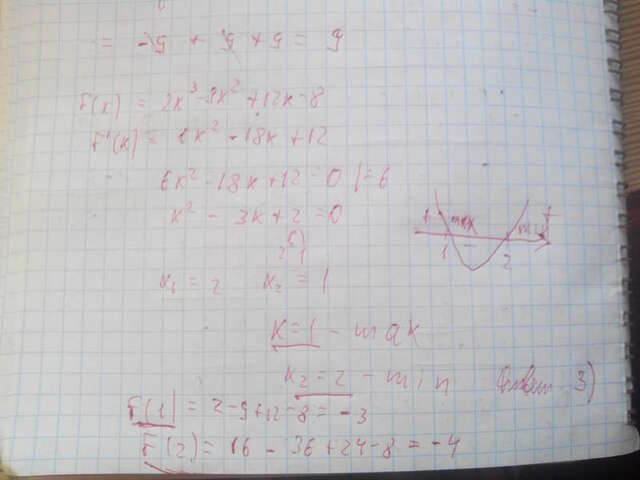 = -9 + 9 + 9 = 9
F(x) = 2x³ - 9x² + 12x - 8
F'(x) = 6x² - 18x + 12
6x² - 18x + 12 = 0 | ÷ 6
x² - 3x + 2 = 0
x₁ = 2 x₂ = 1
+ max - min +
1 2
x = 1 - max
x₂ = 2 - min Ответ 3)
F(1) = 2 - 9 + 12 - 8 = -3
F(2) = 16 - 36 + 24 - 8 = -4